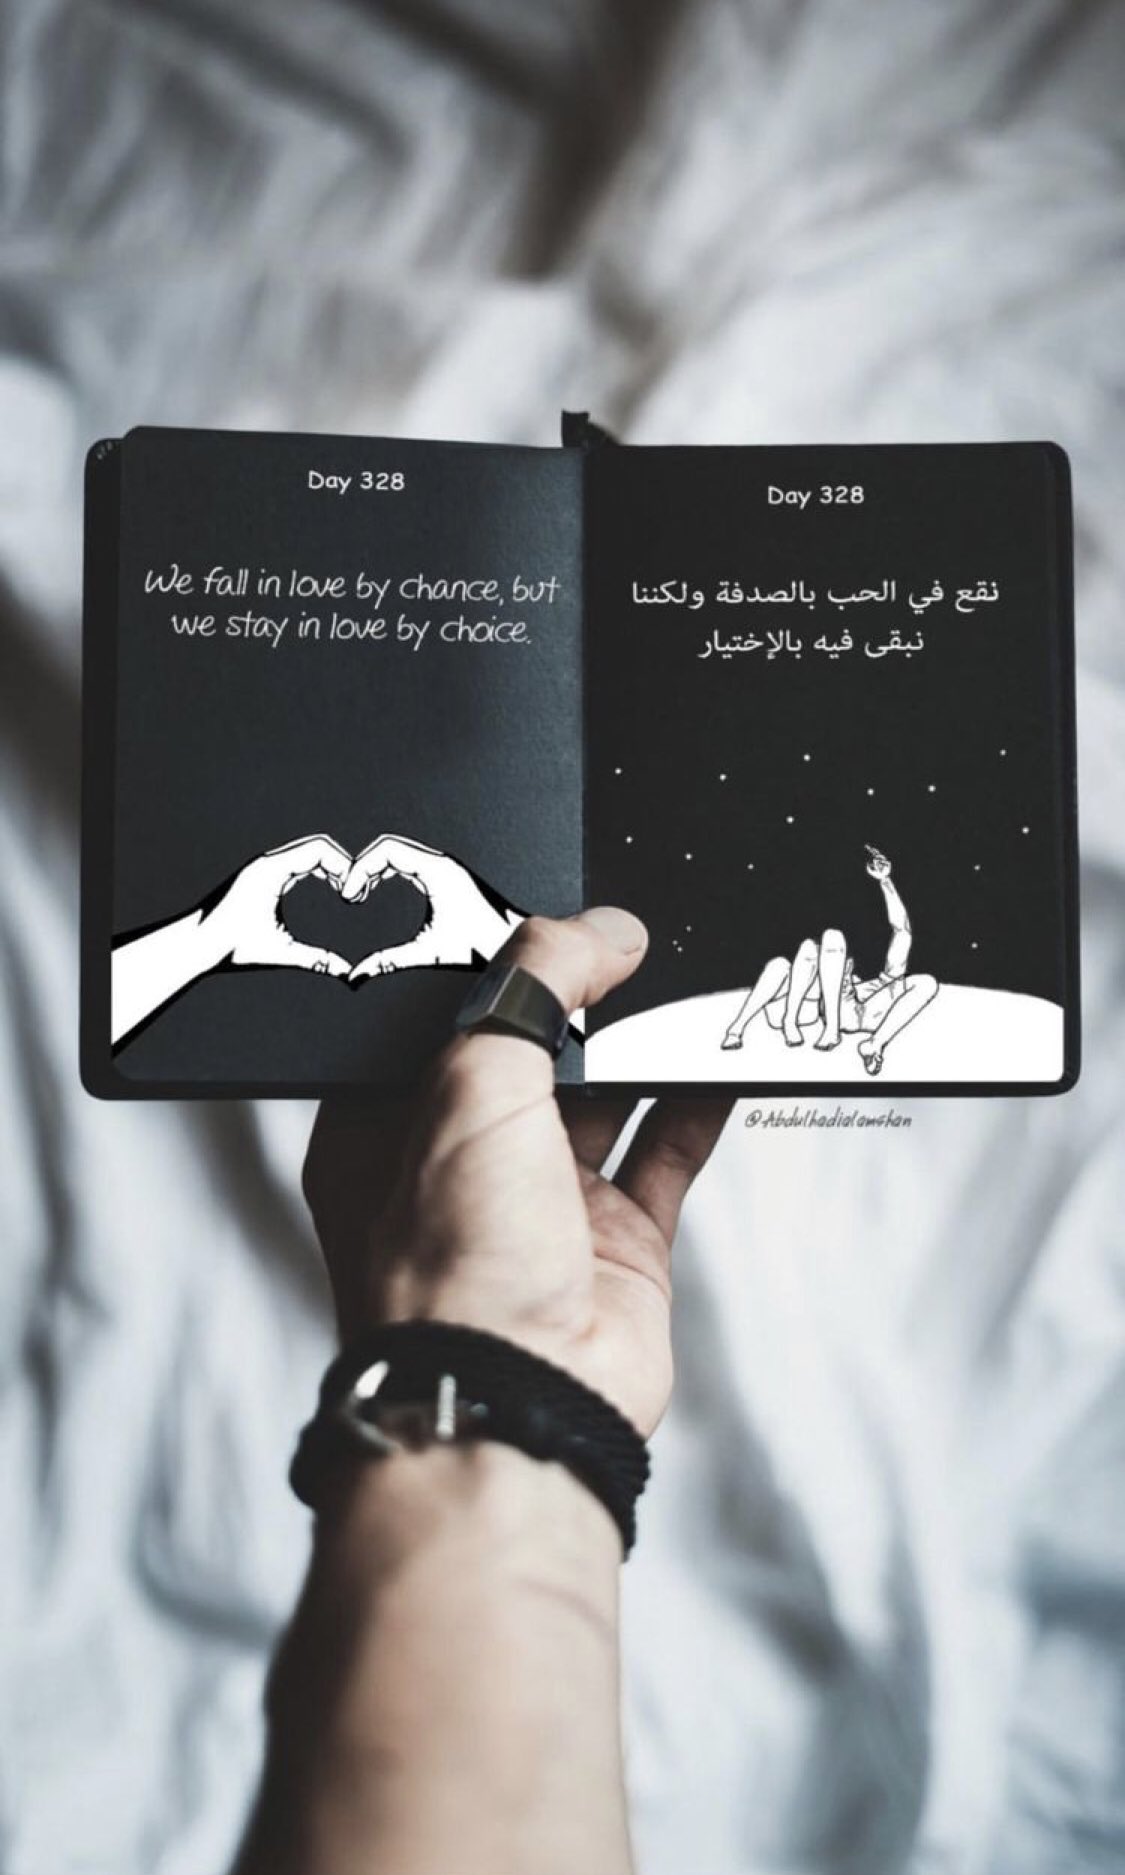 Day 328
We fall in love by chance, but
we stay in love by choice.
Day 328
نقع في الحب بالصدفة ولكننا
نبقى فيه بالإختيار
@Abdulhadialamshan